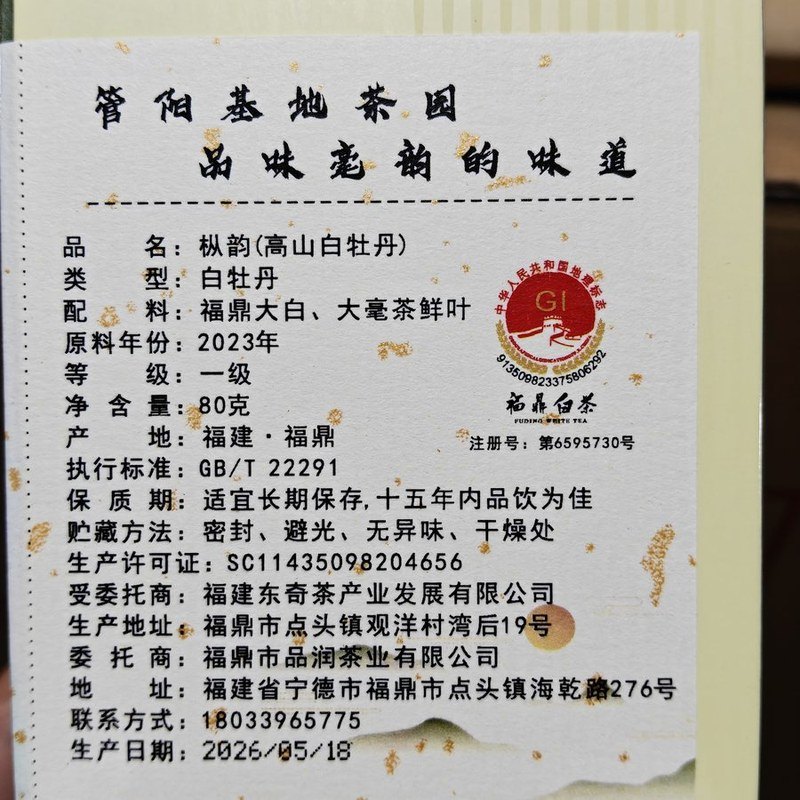 管阳基地茶园
品味毫韵的味道
品 名：枞韵(高山白牡丹)
类 型：白牡丹
配 料：福鼎大白、大毫茶鲜叶
原料年份：2023年
等 级：一级
净 含 量：80克
产 地：福建·福鼎
执行标准：GB/T 22291
保 质 期：适宜长期保存,十五年内品饮为佳
贮藏方法：密封、避光、无异味、干燥处
生产许可证：SC11435098204656
受委托商：福建东奇茶产业发展有限公司
生产地址：福鼎市点头镇观洋村湾后19号
委 托 商：福鼎市品润茶业有限公司
地 址：福建省宁德市福鼎市点头镇海乾路276号
联系方式：18033965775
生产日期：2026/05/18
中华人民共和国地理标志
GI
913509823375806292
福鼎白茶
FUDING WHITE TEA
注册号：第6595730号